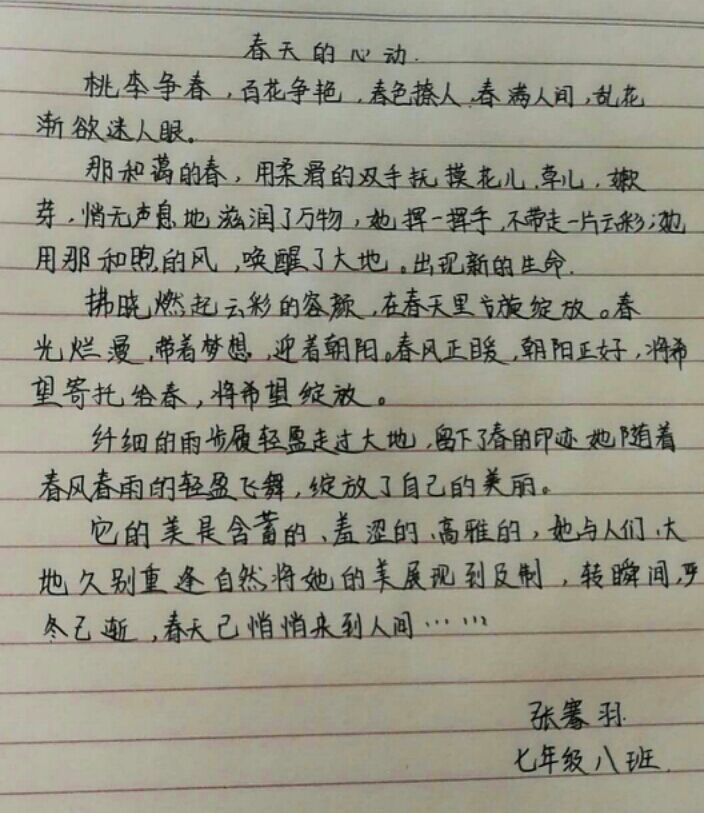 春天的心动.
桃李争春，百花争艳，春色撩人，春满人间，乱花
渐欲迷人眼。
那和蔼的春，用柔滑的双手抚摸花儿、草儿、嫩
芽，悄无声息地滋润了万物，她挥一挥手，不带走一片云彩；她
用那和煦的风，唤醒了大地。出现新的生命.
拂晓燃起云彩的容颜，在春天里旋绽放。春
光烂漫，带着梦想，迎着朝阳。春风正暖，朝阳正好，将希
望寄托给春，将希望绽放。
纤细的雨步履轻盈走过大地，留下了春的印迹她随着
春风春雨的轻盈飞舞，绽放了自己的美丽。
它的美是含蓄的、羞涩的、高雅的，她与人们、大
地久别重逢自然将她的美展现到及制，转瞬间，严
冬已渐，春天已悄悄来到人间……
张骞羽.
七年级八班.